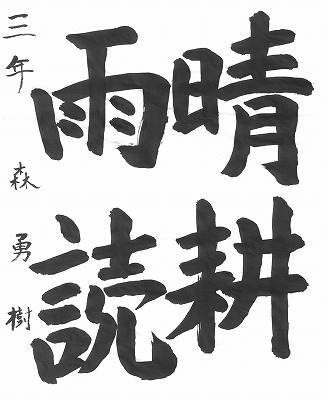 晴耕
雨読
三年 森勇樹